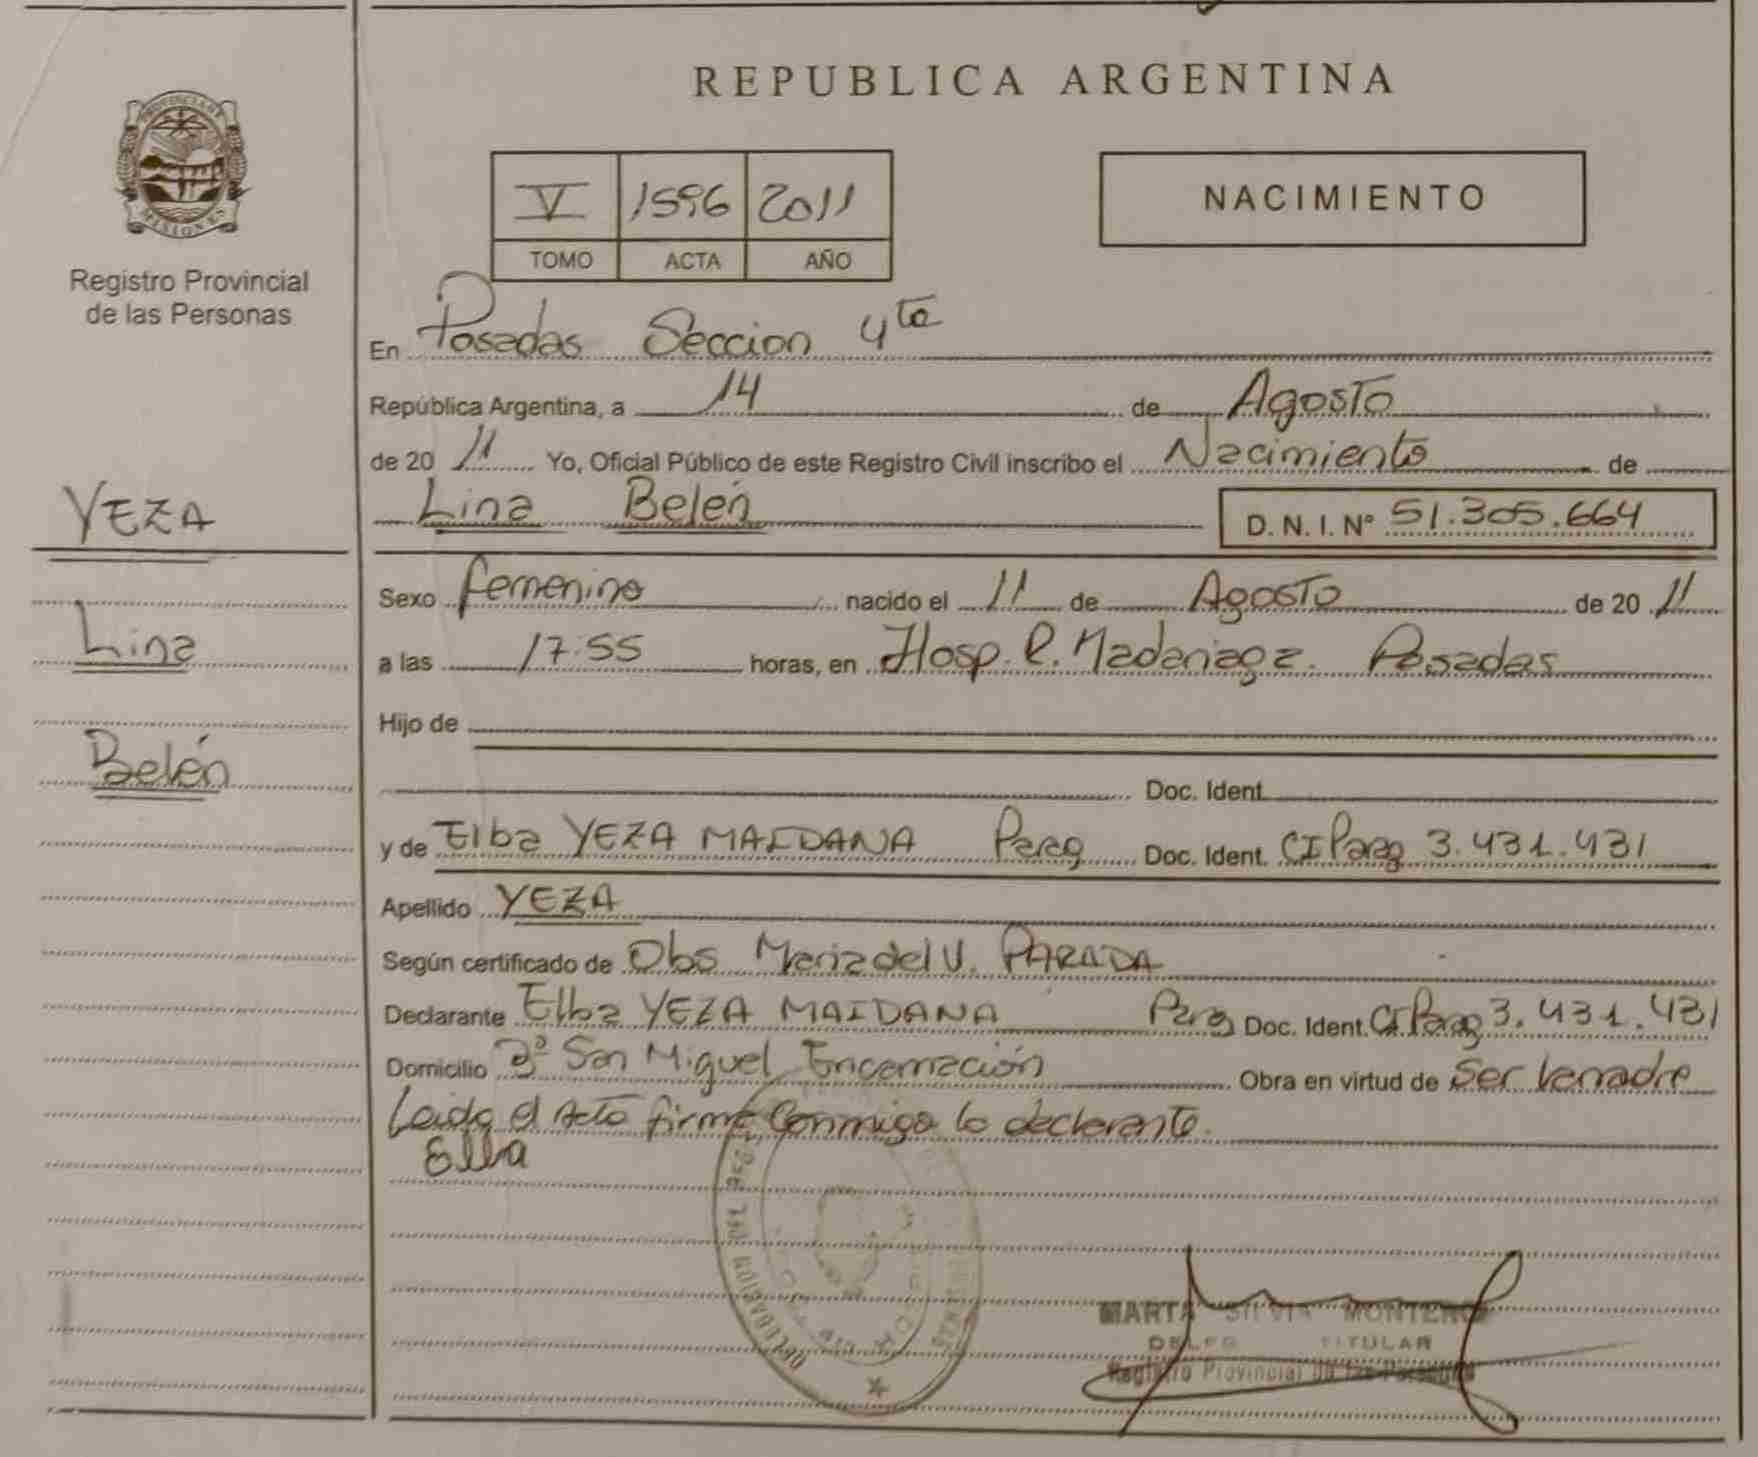 REPUBLICA ARGENTINA
PROVINCIA DE
MISIONES
Registro Provincial
de las Personas
V 1596 2011
TOMO ACTA AÑO
NACIMIENTO
En Posadas Seccion 4ta
República Argentina, a 14 de Agosto
de 20 11 Yo, Oficial Público de este Registro Civil inscribo el Nacimiento de
Lina Belén D. N. I. Nº 51.305.664
YEZA
Lina
Belén
Sexo femenino nacido el 11 de Agosto de 20 11
a las 17:55 horas, en Hosp. R. Madariaga. Posadas
Hijo de
Doc. Ident.
y de Elba YEZA MAIDANA Parag Doc. Ident. CI Parag 3.431.431
Apellido YEZA
Según certificado de Obs Maria del V. PARADA
Declarante Elba YEZA MAIDANA Parag Doc. Ident. CI Parag 3.431.431
Domicilio Bº San Miguel Encarnación Obra en virtud de Ser la madre
Leida el Acta firma Conmigo la declarante.
Elba
MARTA SILVIA MONTERO
TITULAR
Registro Provincial de las Personas